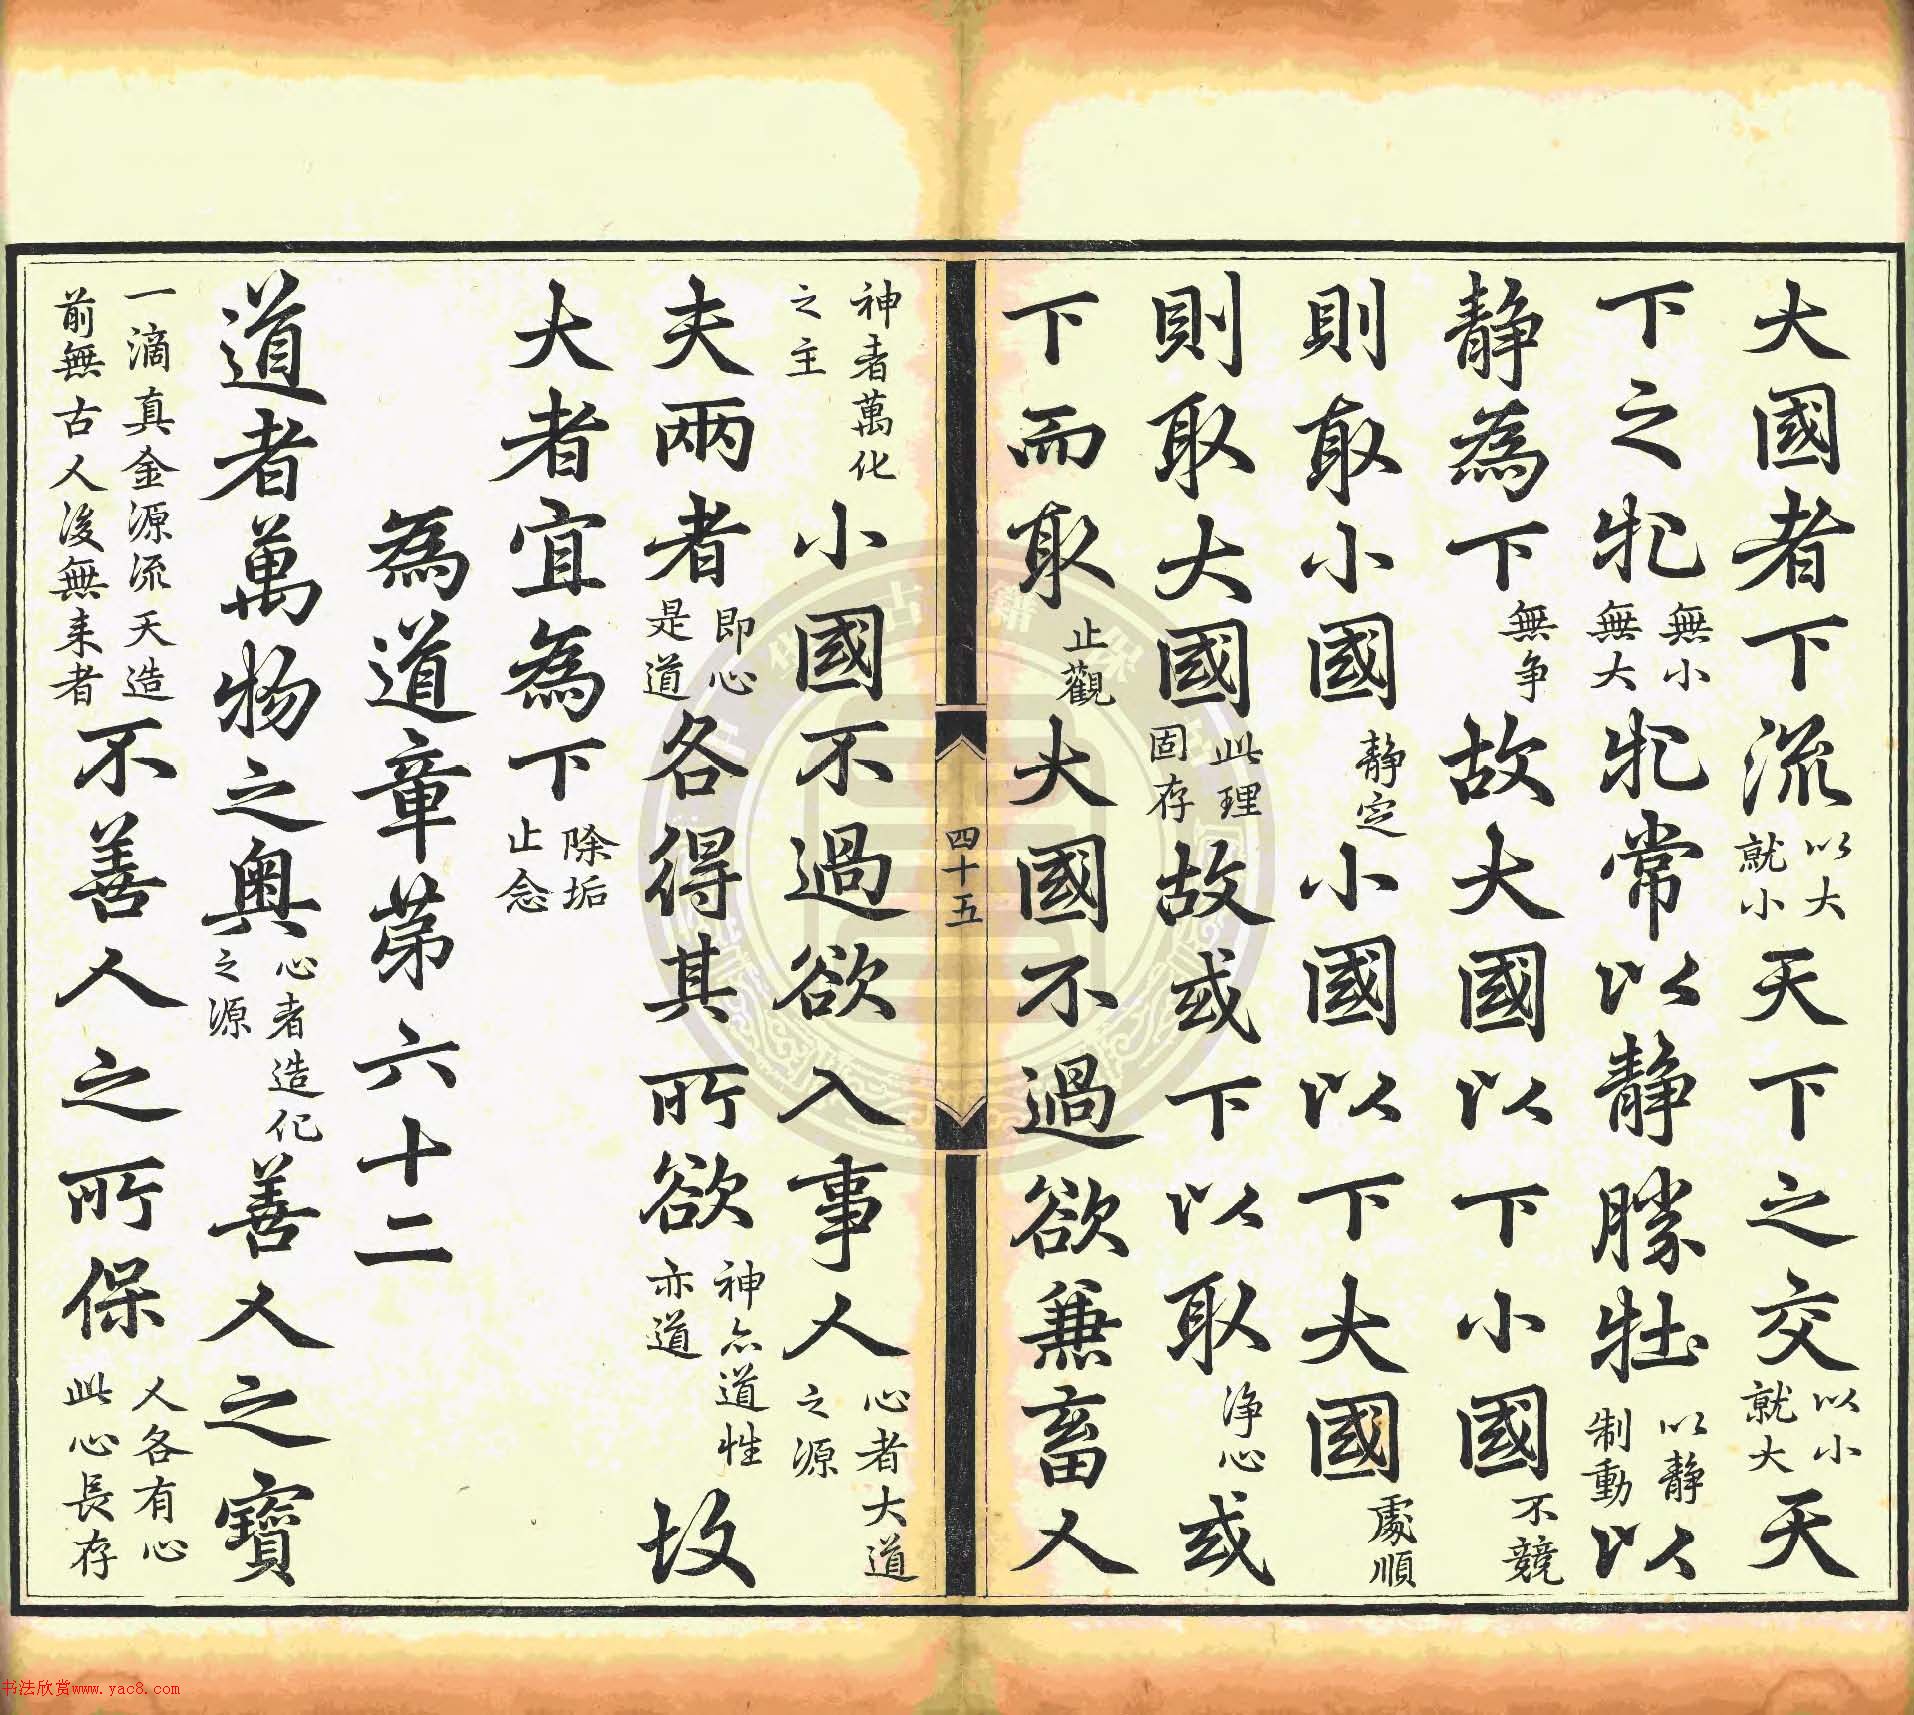 大國者下流以大就小天下之交以小就大天
下之牝無小無大牝常以靜勝牡以靜制動以
靜為下無争故大國以下小國不競
則取小國靜定小國以下大國處順
則取大國此理固存故或下以取淨心或
下而取止觀大國不過欲兼畜人
四十五
神者萬化之主小國不過欲入事人心者大道之源
夫兩者即心是道各得其所欲神亦道性亦道故
大者宜為下除垢止念
為道章第六十二
道者萬物之奧心者造化之源善人之寶
一滴真金源流天造前無古人後無来者不善人之所保人各有心此心長存
书法欣赏www.yac8.com